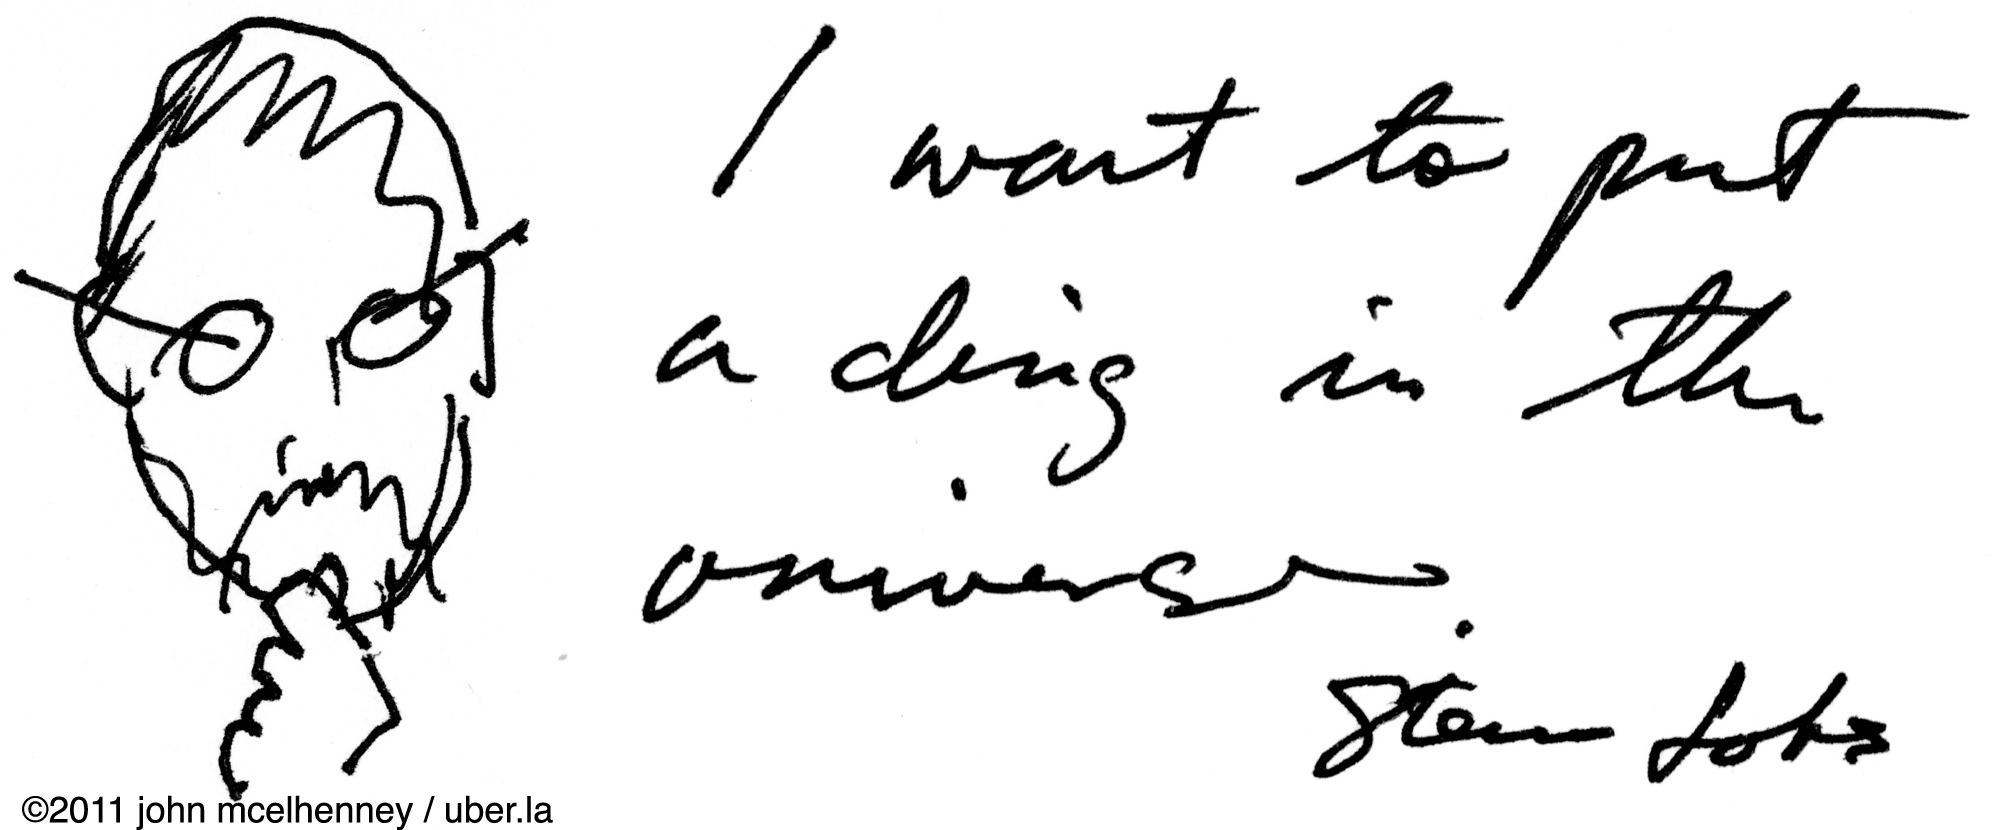 I want to put
a ding in the
universe.
Steve Jobs
©2011 john mcelhenney / uber.la